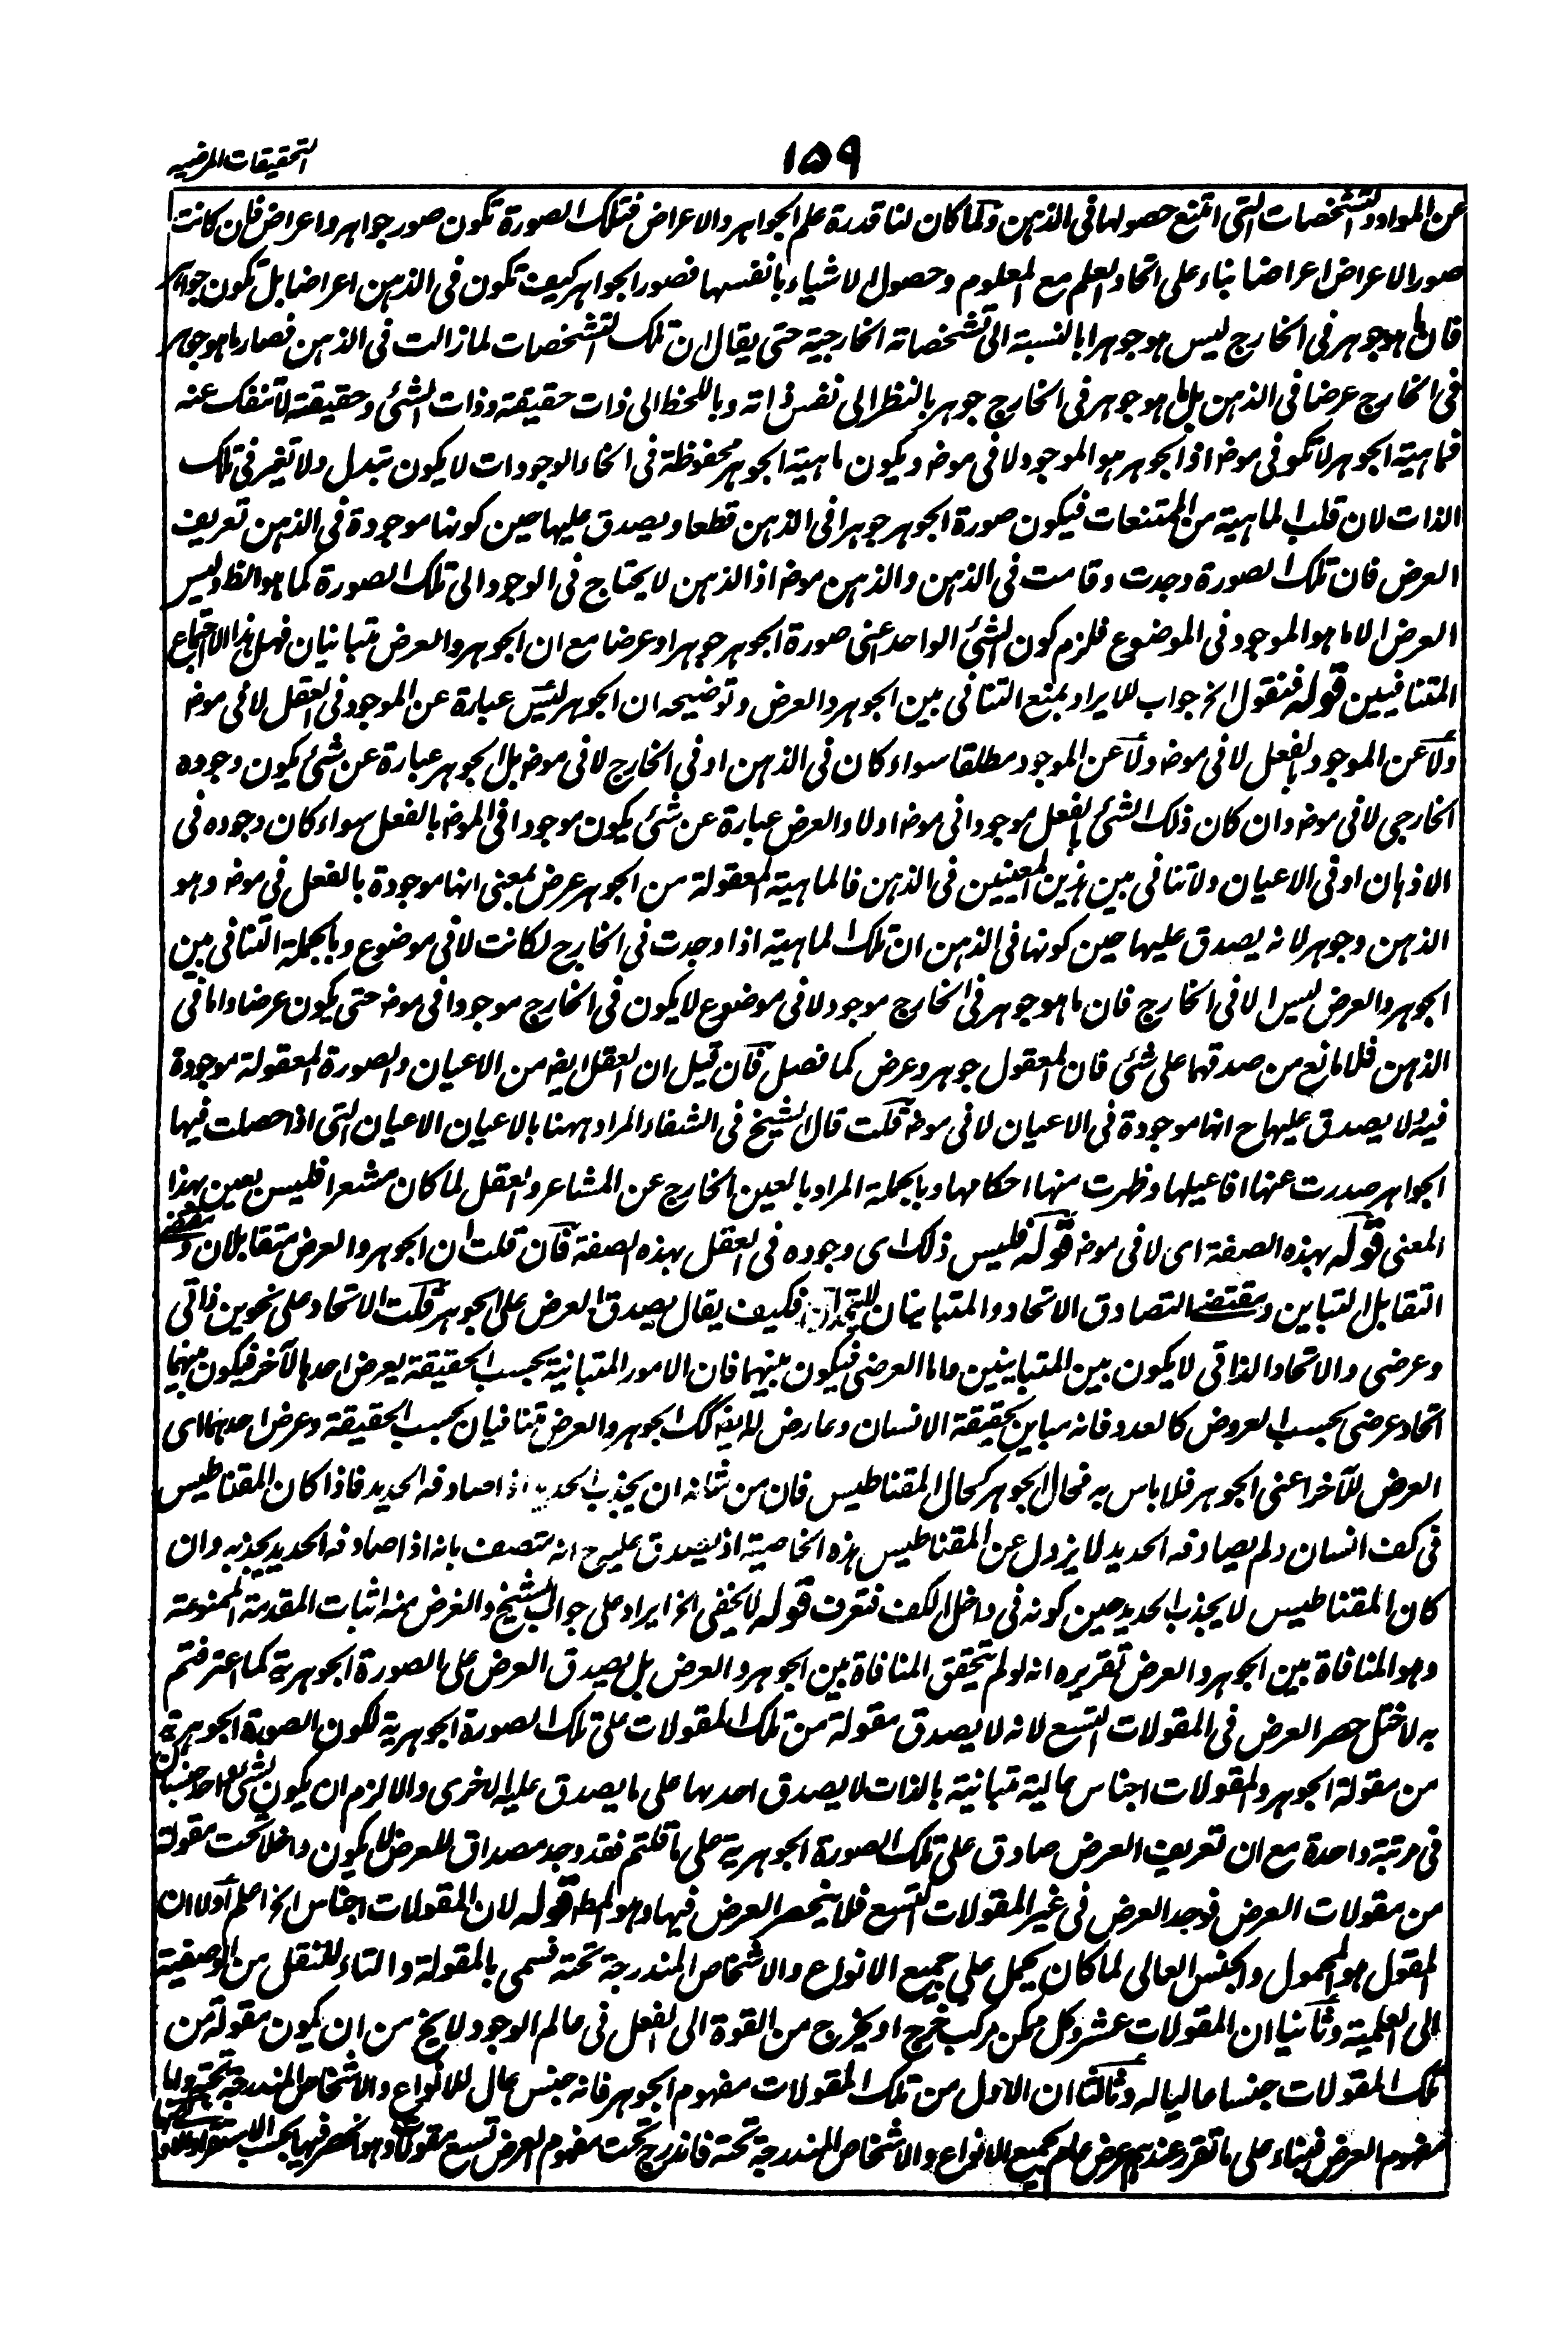 التحقيقات المرضيه
١٥٩
عن المواد والتشخصات التى امتنع حصولها فى الذهن وكما كان لنا قدرة علم الجواهر والاعراض فتلك الصورة تكون صور جواهر واعراض فلئن كانت
صور الاعراض اعراضا بناء على اتحاد العلم مع المعلوم وحصول الاشياء بانفسها فصور الجواهر كيف تكون فى الذهن اعراضا بل تكون جواهر
فان ما هو جوهر فى الخارج ليس هو جوهرا بالنسبة الى تشخصاته الخارجية حتى يقال ان تلك التشخصات لما زالت فى الذهن فصار ما هو جوهر
فى الخارج عرضا فى الذهن بل ما هو جوهر فى الخارج جوهر بالنظر الى نفس ذاته وباللحظ الى ذات حقيقته وذات الشئ وحقيقته لا تنفك عنه
فماهية الجوهر لا تكو فى موضو اذ الجوهر هو الموجود لا فى موضو ويكون ماهية الجوهر محفوظة فى انحاء الوجودات لا يكون تبدل ولا تغير فى تلك
الذات لان قلب الماهية من الممتنعات فيكون صورة الجوهر جوهرا فى الذهن قطعا ويصدق عليها حين كونها موجودة فى الذهن تعريف
العرض فان تلك الصورة وجدت وقامت فى الذهن والذهن موضو اذ الذهن لا يحتاج فى الوجود الى تلك الصورة كما هو الظ وليس
العرض الا ما هو الموجود فى الموضوع فلزم كون الشئ الواحد اعنى صورة الجوهر جوهرا وعرضا مع ان الجوهر والعرض متبانيان فهل هذا الا اجتماع
المتنافيين قوله فنقول الخ جواب للايراد بمنع التنافى بين الجوهر والعرض وتوضيحه ان الجوهر ليس عبارة عن الموجود فى العقل لا فى موضو
ولا عن الموجود بالفعل لا فى موضو ولا عن الموجود مطلقا سواء كان فى الذهن او فى الخارج لا فى موضو بل الجوهر عبارة عن شئ يكون وجوده
الخارجى لا فى موضو وان كان ذلك الشئ بالفعل موجودا فى موضو اولا والعرض عبارة عن شئ يكون موجودا فى الموضو بالفعل سواء كان وجوده فى
الاذهان او فى الاعيان ولا تنافى بين هذين المعنيين فى الذهن فالماهية المعقولة من الجوهر عرض بمعنى انها موجودة بالفعل فى موضو وهو
الذهن وجوهر لانه يصدق عليها حين كونها فى الذهن ان تلك الماهية اذا وجدت فى الخارج لكانت لا فى موضوع وبالجملة التنافى بين
الجوهر والعرض ليس الا فى الخارج فان ما هو جوهر فى الخارج موجود لا فى موضوع لا يكون فى الخارج موجودا فى موضو حتى يكون عرضا واما فى
الذهن فلا مانع من صدقهما على شئ فان المعقول جوهر وعرض كما فصل فان قيل ان العقل ايضو من الاعيان والصورة المعقولة موجودة
فيه ولا يصدق عليها ح انها موجودة فى الاعيان لا فى موضو قلت قال الشيخ فى الشفاء المراد ههنا بالاعيان الاعيان التى اذا حصلت فيها
الجواهر صدرت عنها افاعيلها وظهرت منها احكامها وبالجملة المراد بالعين الخارج عن المشاعر والعقل لما كان مشعرا فليس بعين بهذا
المعنى قوله بهذه الصفة اى لا فى موضو قوله فليس ذلك اى وجوده فى العقل بهذه الصفة فان قلت ان الجوهر والعرض متقابلان ومقتضى
التقابل التباين ومقتضى التصادق الاتحاد والمتباينان لا يتحدان فكيف يقال بصدق العرض على الجوهر قلت الاتحاد على نحوين ذاتى
وعرضى والاتحاد الذاتى لا يكون بين المتباينين واما العرضى فيكون بينهما فان الامور المتبانية بحسب الحقيقة يعرض احدها للآخر فيكون بينهما
اتحاد عرضى بحسب العروض كالعدد فانه مباين لحقيقة الانسان وعارض له ايضو كك الجوهر والعرض متنافيان بحسب الحقيقة وعرض احدهما اى
العرض للآخر اعنى الجوهر فلا باس به فحال الجوهر كحال المقناطيس فان من شانه ان يجذب الحديد اذا صادفه الحديد فاذا كان المقناطيس
فى كف انسان ولم يصادفه الحديد لا يزول عن المقناطيس هذه الخاصية اذ يصدق عليه ح انه متصف بانه اذا صادفه الحديد يجذبه وان
كان المقناطيس لا يجذب الحديد حين كونه فى داخل الكف فتعرف قوله لا يخفى الخ ايراد على جواب الشيخ والغرض منه اثبات المقدمة الممنوعة
وهو المنافاة بين الجوهر والعرض تقريره انه لو لم يتحقق المنافاة بين الجوهر والعرض بل يصدق العرض على الصورة الجوهرية كما اعترفتم
به لاختل حصر العرض فى المقولات التسع لانه لا يصدق مقولة من تلك المقولات على تلك الصورة الجوهرية لكون الصورة الجوهرية
من مقولة الجوهر والمقولات اجناس عالية متبانية بالذات لا يصدق احدها على ما يصدق عليه الاخرى والا لزم ان يكون لشئ واحد جنسان
فى مرتبة واحدة مع ان تعريف العرض صادق على تلك الصورة الجوهرية على ما قلتم فقد وجد مصداق للعرض لا يكون داخلا تحت مقولة
من مقولات العرض فوجد العرض فى غير المقولات التسع فلا ينحصر العرض فيها وهو المط قوله لان المقولات اجناس الخ اعلم اولا ان
المقول هو المحمول والجنس العالى لما كان يحمل على جميع الانواع والاشخاص المندرجة تحته فسمى بالمقولة والتاء للنقل من الوصفية
الى العلمية وثانيا ان المقولات عشر وكل ممكن مركب خرج او يخرج من القوة الى الفعل فى عالم الوجود لا يخ من ان يكون مقولة من
تلك المقولات جنسا عاليا له وثالثا ان الاول من تلك المقولات مفهوم الجوهر فانه جنس عال للانواع والاشخاص المندرجة تحته واما
مفهوم العرض فبناء على ما تقرر عندهم عرض عام لجميع الانواع والاشخاص المندرجة تحته فاندرج تحت مفهوم العرض تسع مقولات وهو انحصر فيها بحسب الاستقراء